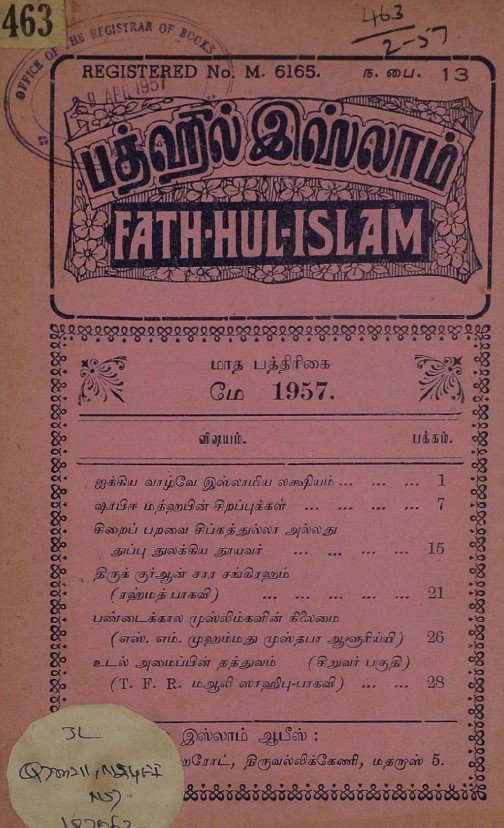 463
463
2-57
OFFICE OF THE REGISTRAR OF BOOKS
APR 1957
REGISTERED No. M. 6165. ந. பை. 13
பத்ஹுல் இஸ்லாம்
FATH-HUL-ISLAM
மாத பத்திரிகை
மே 1957.
விஷயம். பக்கம்.
ஐக்கிய வாழ்வே இஸ்லாமிய லக்ஷியம் ... ... ... 1
ஷாபிஈ மத்ஹபின் சிறப்புக்கள் ... ... ... ... 7
சிறைப் பறவை சிப்கத்துல்லா அல்லது
துப்பு துலக்கிய தூயவர் ... ... ... ... 15
திருக் குர்ஆன் சார சங்கிரஹம்
(ரஹ்மத் பாகவி) ... ... ... ... ... 21
பண்டைக்கால முஸ்லிம்களின் நிலைமை
(எஸ். எம். முஹம்மது முஸ்தபா ஆளூரிய்யி) 26
உடல் அமைப்பின் தத்துவம் (சிறுவர் பகுதி)
(T. F. R. மஆலி ஸாஹிபு-பாகவி) ... ... 28
இஸ்லாம் ஆபீஸ் :
றரோட், திருவல்லிக்கேணி, மதராஸ் 5.
JL
N57